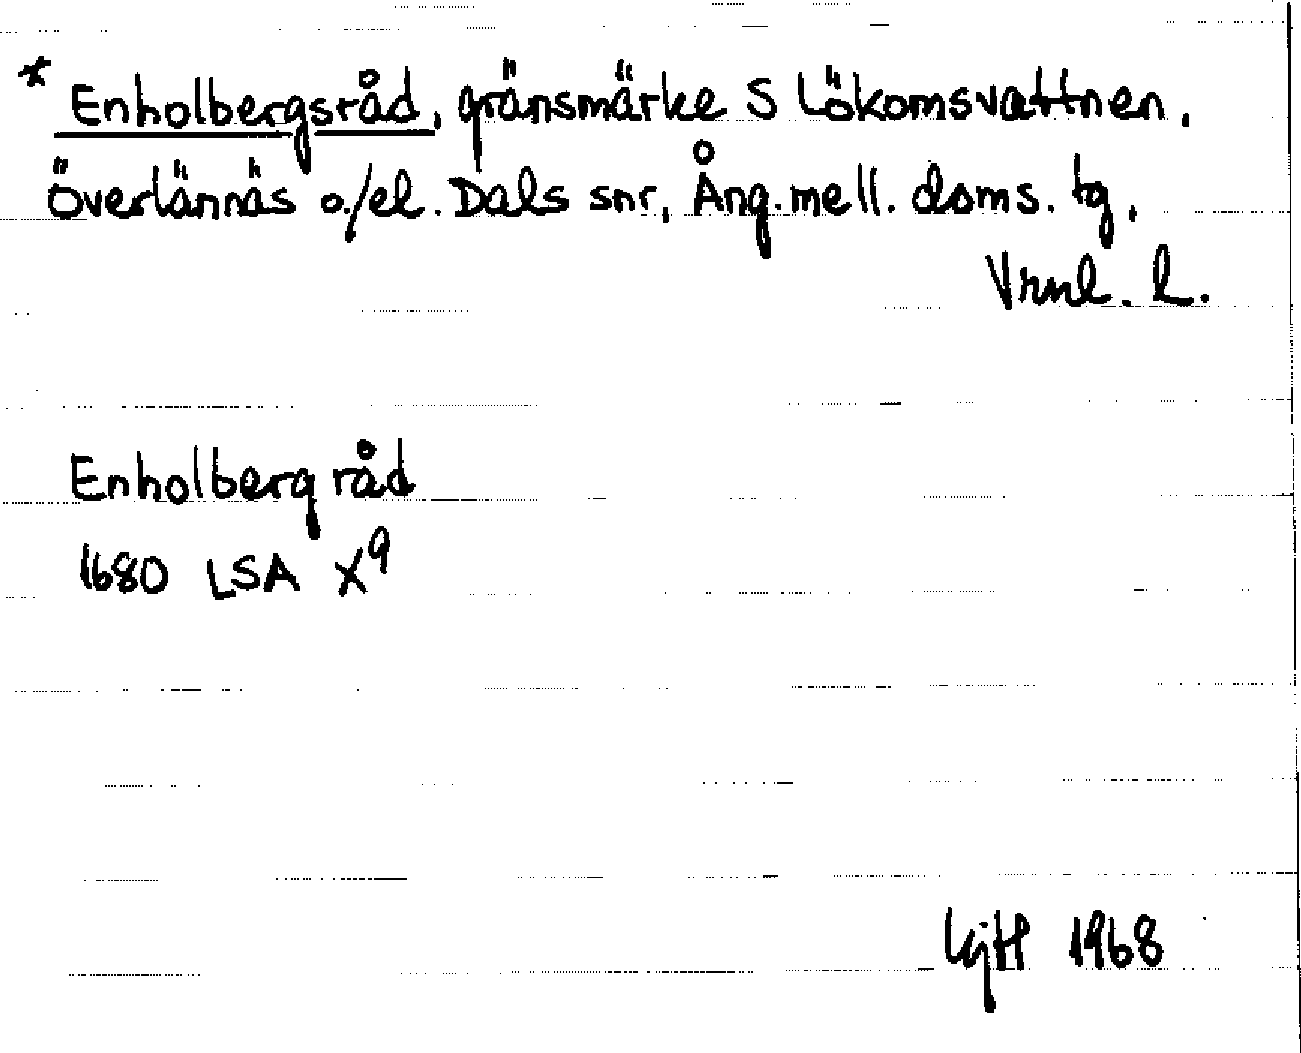 * Enholbergsråd, gränsmärke S Lökomsvattnen,
Överlännäs o./el. Dals snr, Ång. mell. doms. tg,
Vrnl. l.
Enholberg råd
1680 LSA X9
1968